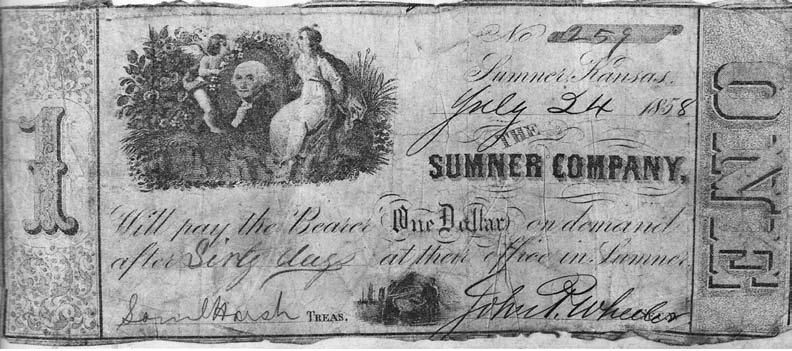 1
No 259
Sumner, Kansas.
July 24 1858
THE
SUMNER COMPANY,
Will pay the Bearer One Dollar on demand
after Sixty days at their office in Sumner
Saml Harsh TREAS.
John P. Wheeler
ONE